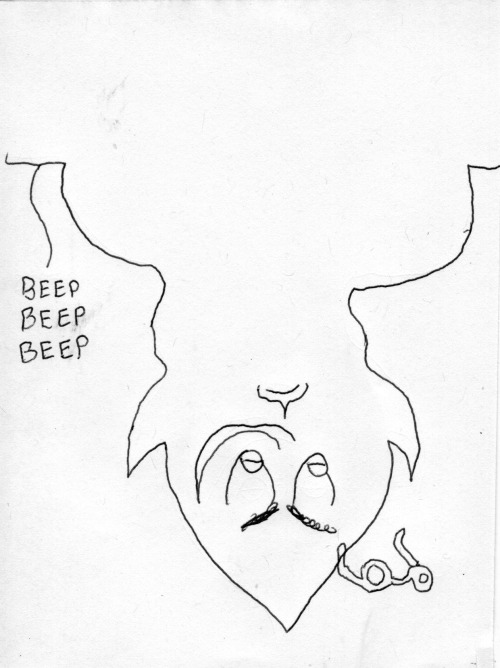 BEEP
BEEP
BEEP